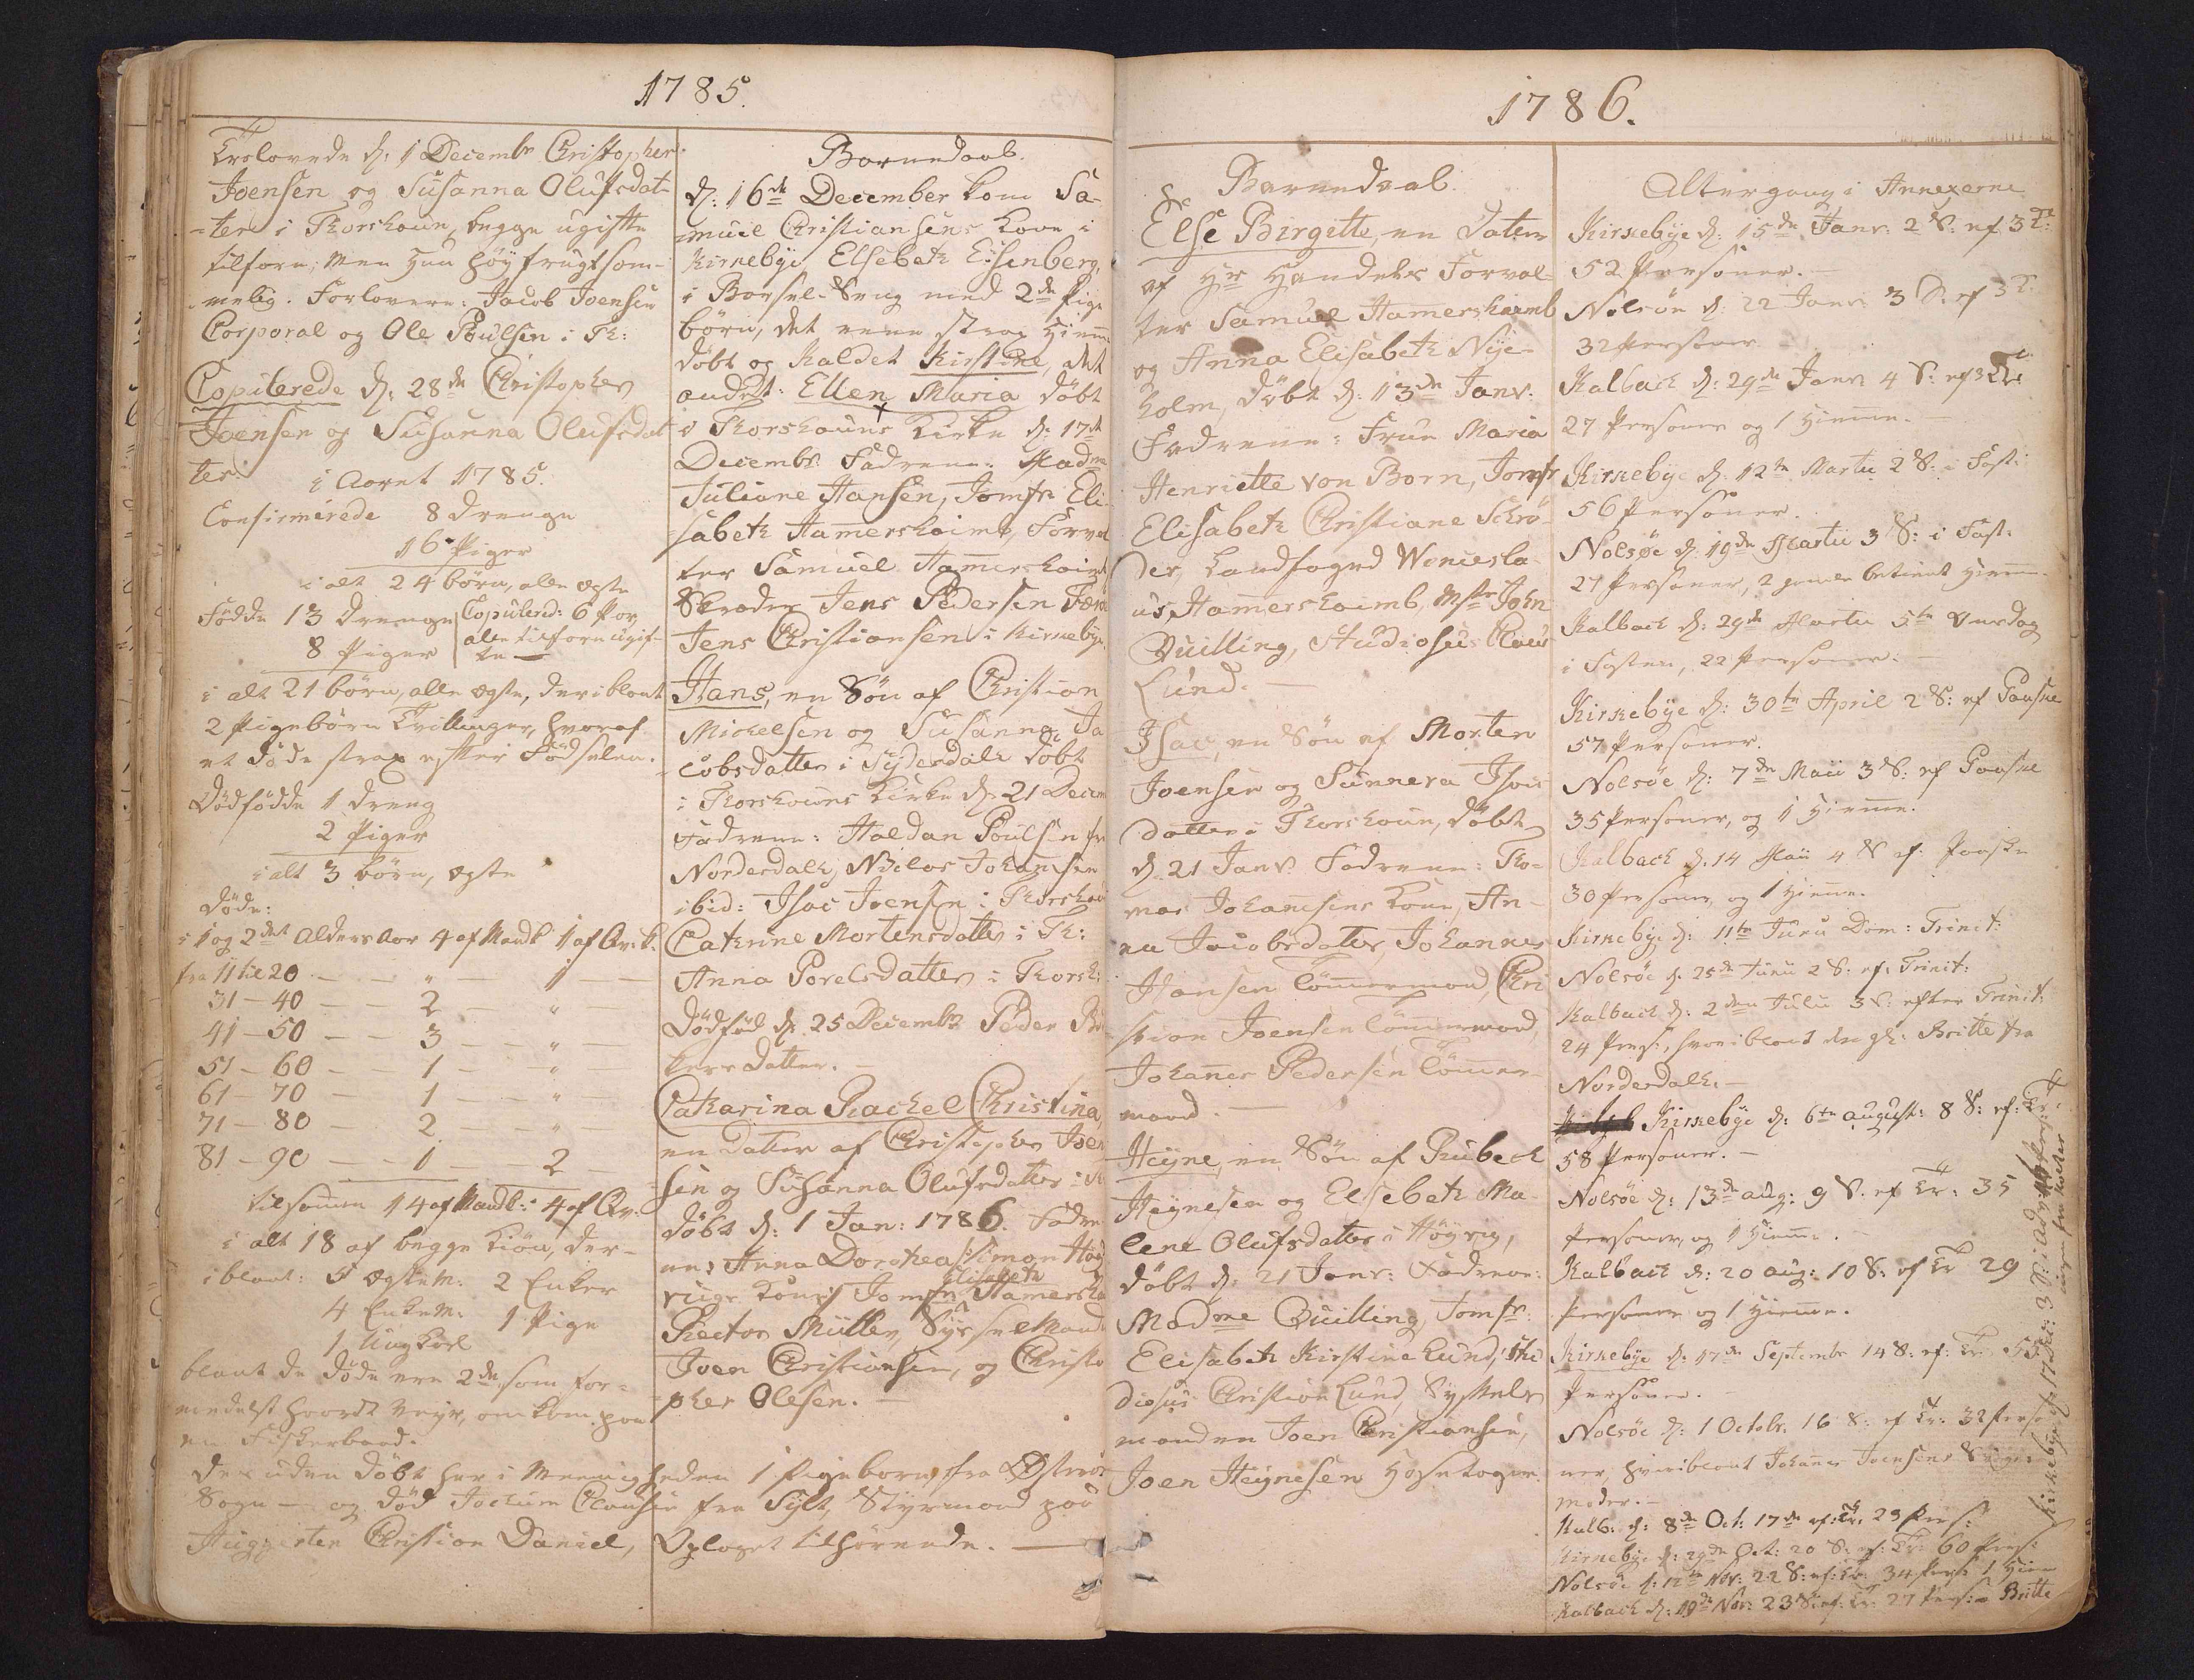 1785.
Trolovede d: 1 Decembr Christopher
Joensen og Susanna Olufsdat-
ter i Thorshaun, begge ugifte
tilforn; men hun høy frugtsom-
melig. Forlovere: Jacob Joensen
Corporal og Ole Poulsen i Th:
Copulerede d: 28de Christopher
Joensen og Susanna Olufsdat
ter.
i Aaret 1785.
Confirmerede 8 Drenge
16 Piger
i alt 24 børn, alle ægte
Fødde 13 Drenge Copulerd: 6 Par
8 Piger alle tilforn ugif-
te
i alt 21 børn, alle ægte, deriblant
2 Pigebørn Tvillinger, hvoraf
et døde strax efter Fødselen.
Dødfødde 1 Dreng
2 Piger
i alt 3 børn, ægte
Døde:
i 1 og 2det Alders Aar 4 af Mandk 1 af Qv.k.
fra 11 til 20 — " — 1 —
31 – 40 — 2 — " —
41 – 50 — 3 — " —
51 – 60 — 1 — " —
61 – 70 — 1 — " —
71 – 80 — 2 — " —
81 – 90 — 1 — 2 —
tilsamen 14 af Mandk: 4 af Qv:
i alt 18 af begge Kiøn, der-
iblant: 5 ægtem. 2 Enker
4 Enkem. 1 Pige
1 Ungkarl
blant de døde ere 2de, som for-
medelst haardt veyr, omkom paa
en Fiskerbaad.
Barnedaab.
d: 16de December kom Sa-
muel Christiansens Kone i
Kirkebye Elsebeth Eisenberg,
i Barsel-Seng med 2de Pige
børn, det eene strax hiemme
døbt og kaldet Kirstine, det
andet: Ellen Maria døbt
i Thorshauns Kirke d: 17de
Decembr. Fadrene: Madme
Juliane Hansen, Jomfr Eli-
sabeth Hamershaimb, Forval
ter Samuel Hamershaimb
Skræder Jens Pedersen
Jens Christiansen i Kirkebye.
Hans, en Søn af Christian
Michelsen og Susanna Ja
cobsdatter i Syderdahl døbt
i Thorshauns Kirke d: 21 Decem
Fadrene: Haldan Poulsen fr
Norderdahl, Niclas Johansen
ibid: Isac Joensen i Thorshau
Cathrine Mortensdatter i Th:
Anna Porelsdatter i Thorsh:
Dødfød d: 25 Decembr Peder
kers datter. —
Catharina Rachel Christina,
en datter af Christopher Joen
sen og Susanna Olufsdatter i
døbt d: 1 Jan: 1786. Fadre
ne: Anna Dorothea Simon
Kone, Jomfr Elisabeth Hamersha
Rector Müller, Sysselmand
Joen Christiansen, og Christo
pher Olesen. —
Desuden døbt her i Meenigheden 1 Pigebarn fra Østerøe
Sogn — og død Jochum Clausen fra Sylt, Styrmand paa
Huggerten Christian Daniel, Oplaget tilhørende. —
1786.
Barnedaab.
Else Birgitte, en Datter
af Hr Handels Forval-
ter Samuel Hamershaimb
og Anna Elisabeth Nye-
holm, døbt d: 13de Janv:
Fadrene: Frue Maria
Henriette von Born, Jomfr
Elisabeth Christiane Schrø-
der, Landfoged Wencesla-
us Hamershaimb, Mstr John
Quilling, Studiosus
Lund. —
Isac, en Søn af Morten
Joensen og Sunneva Isacs
datter i Thorshaun, døbt
d: 21 Janv. Fadrene: Tho-
mas Johanesens Kone, An-
na Jacobsdatter, Johannes
Hansen Tømmermand, Chri
stian Joensen Tømmermand,
Johannes Pedersen Tømmer-
mand. —
Heyne, en Søn af Rubech
Heynesen og Elsebeth Ma-
lene Olufsdatter i Høyvig,
døbt d: 21 Janv: Fadrene:
Madme Quilling, Jomfr
Elisabeth Kirstine Lund, Stu
diosus Christian Lund, Syssel-
manden Joen Christiansen,
Joen Heynesen
Altergang i Annexerne
Kirkebye d: 15de Janv: 2 S: ef 3 K:
52 Personer. —
Nolsøe d: 22 Janv: 3 S. ef 3 K:
32 Personer
Kalbach d: 29de Janv 4 S: ef 3 K:
27 Personer og 1 hiemme. —
Kirkebye d: 12te Martii 2 S: i Fast:
56 Personer.
Nolsøe d: 19de Martii 3 S: i Fast:
27 Personer, 2 gamle betient hiemme
Kalbach d: 29de Martii 5te Onsdag
i Fasten, 22 Personer. —
Kirkebye d: 30te April 2 S: ef Paaske
57 Personer.
Nolsøe d: 7de Maii 3 S: ef Paaske
35 Personer, og 1 hiemme.
Kalbach d: 14 Maii 4 S ef: Paaske
30 Personer, og 1 hiemme.
Kirkebye d: 11te Junii Dom: Trinit:
Nolsøe d: 25de Junii 2 S: ef: Trinit:
Kalbach d: 2den Julii 3 S: efter Trinit:
24 Pers:, hvoriblant den gl: Britte fra
Norderdahl. —
Kirkebye d: 6te August: 8 S: ef: Tr:
58 Personer. —
Nolsøe d: 13de Aug: 9 S. ef Tr: 35
Personer, og 1 hiemme.
Kalbach d: 20 Aug: 10 S: ef Tr 29
Personer og 1 hiemme.
Kirkebye d: 17de Septembr 14 S: ef: Tr: 55
Personer.
Nolsøe d: 1 Octobr. 16 S: ef Tr: 32 Perso
ner, hvoriblant Johannes Joensens Sviger
moder. —
Kalb: d: 8de Oct: 17de ef: Tr: 23 Pers:
Kirkebye d: 29de Oct: 20 S: ef: Tr: 60 Pers:
Nolsøe d: 12te Nov: 22 S: ef: Tr: 34 Pers 1 hiem
Kalbach d: 19de Nov: 23 S: ef: Tr: 27 Pers: Britte
Kirkebye d: 17 Dec: 3 S: i Adv